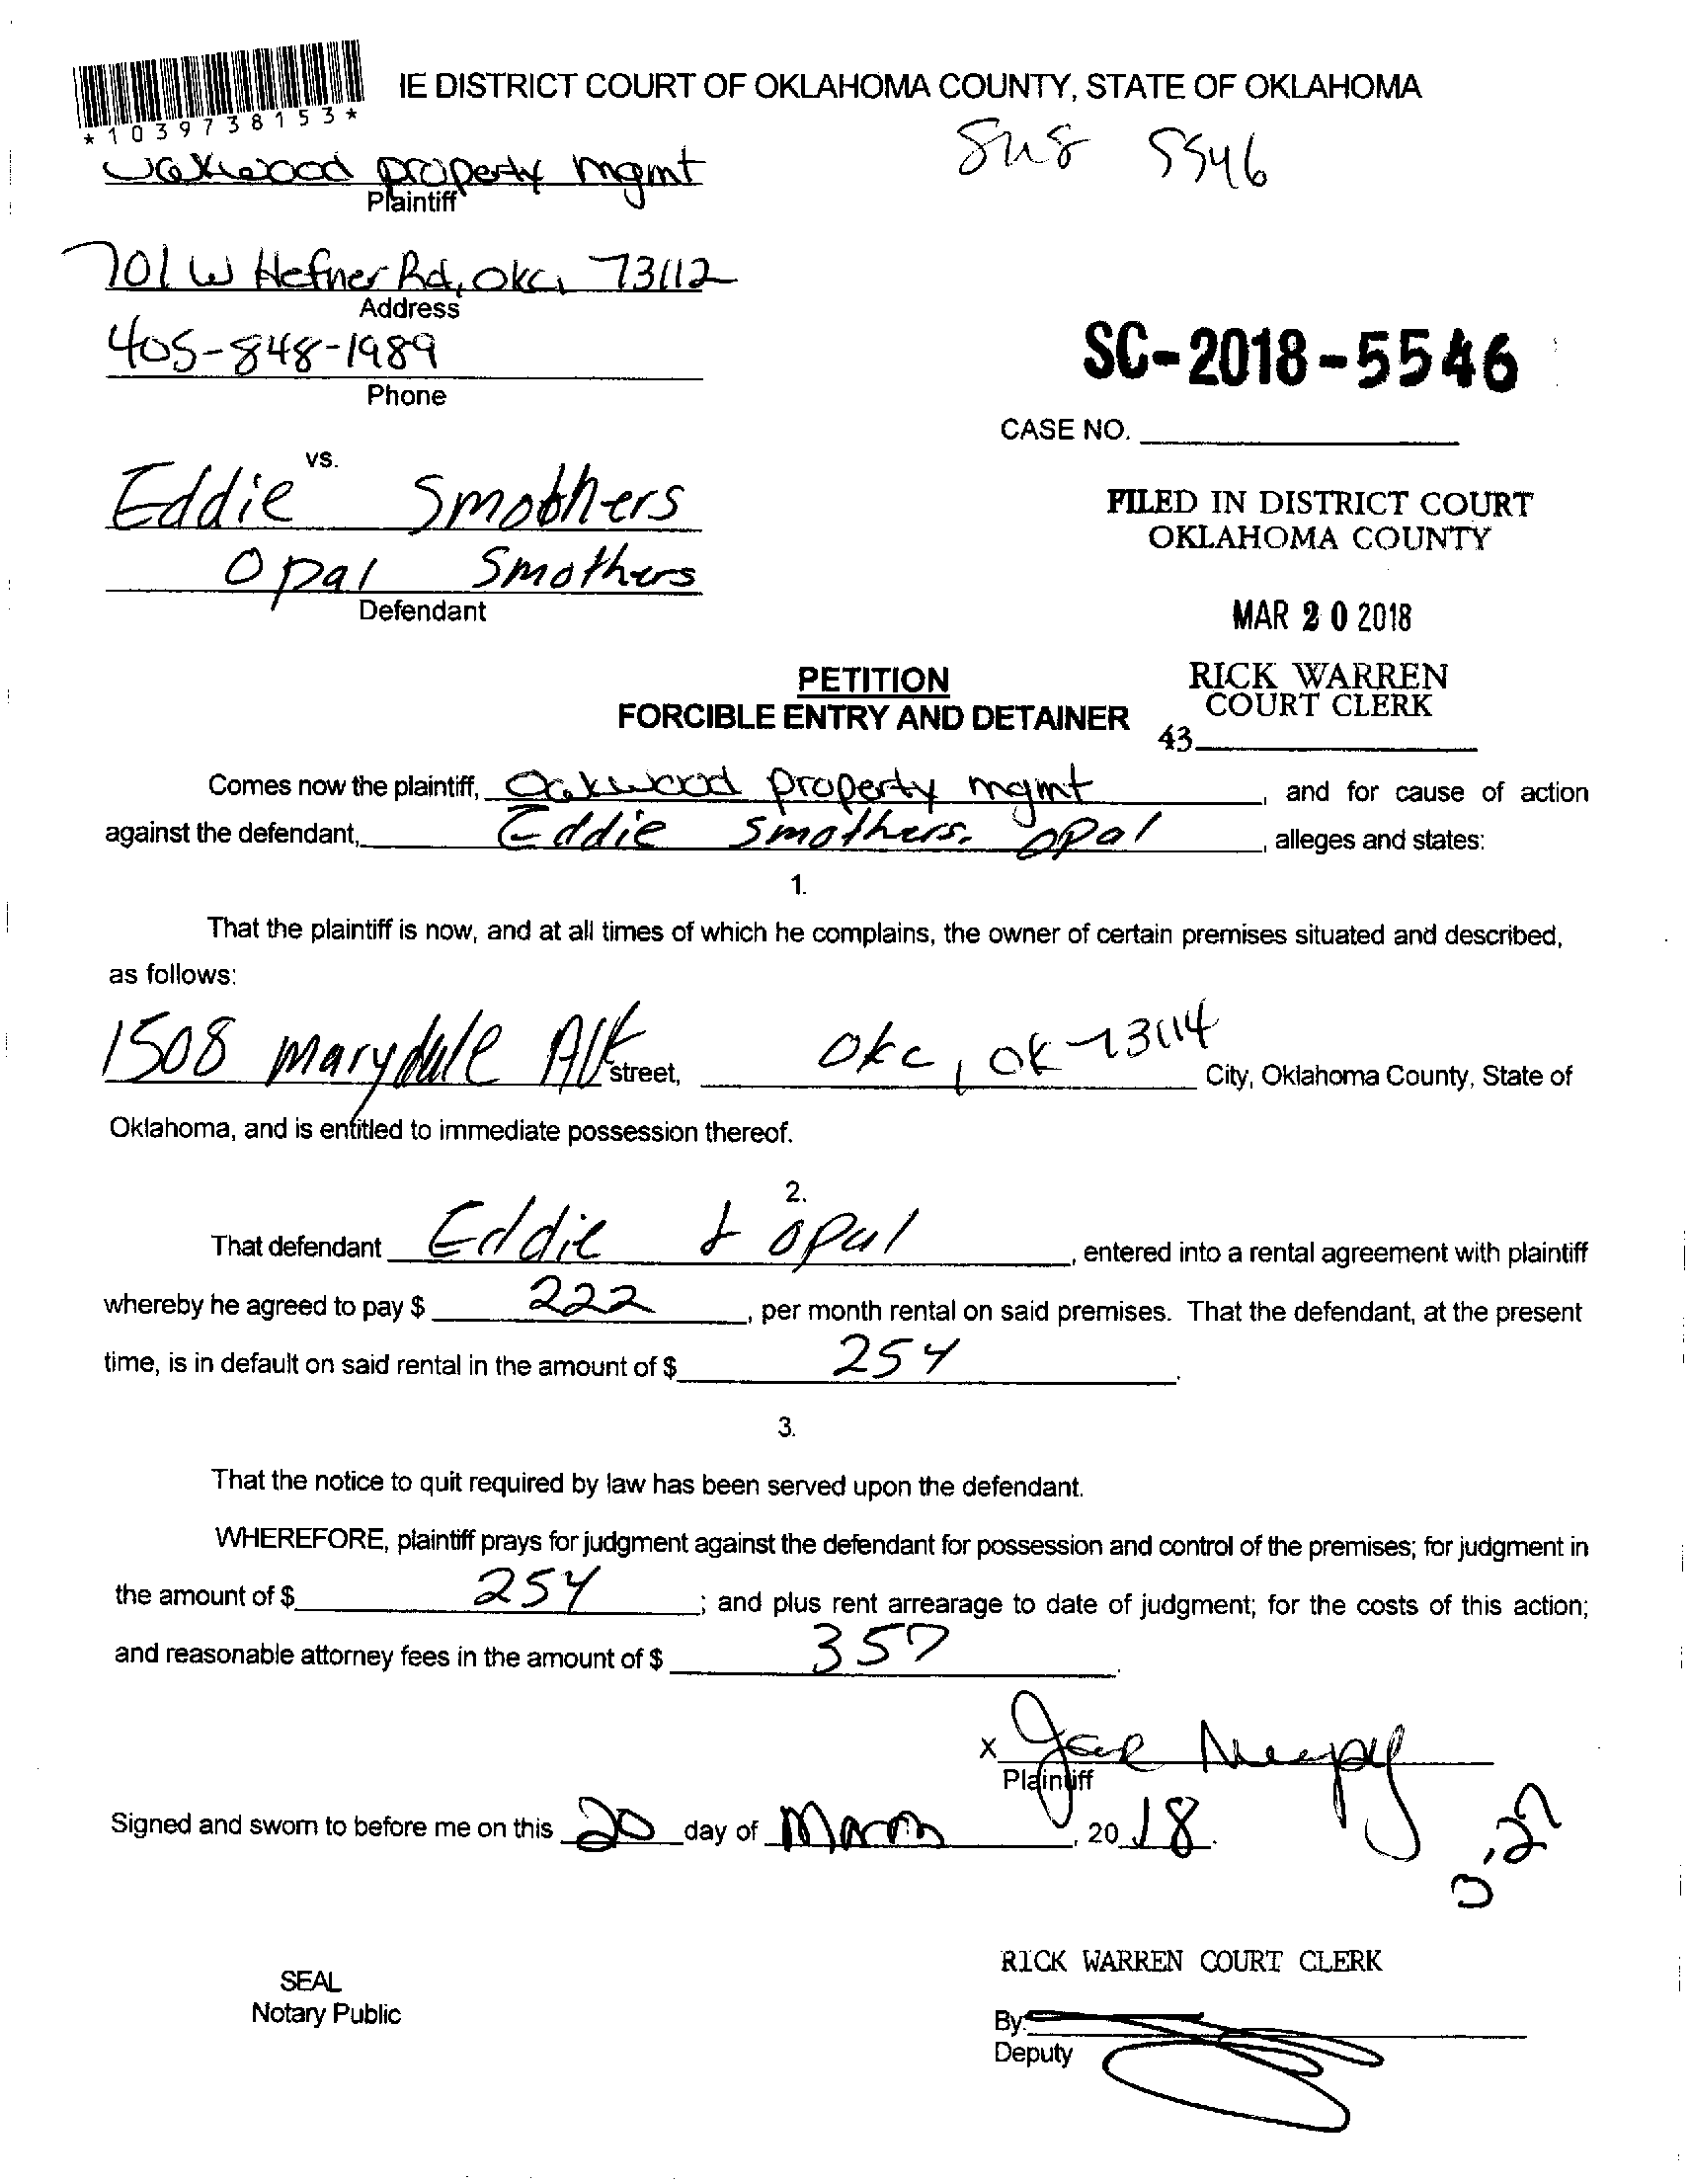 IE DISTRICT COURT OF OKLAHOMA COUNTY, STATE OF OKLAHOMA
*1039738153*
Oakwood property mgmt
Plaintiff
5546
701 W Hefner Rd, OKC, 73112
Address
405-848-1989
Phone
SC-2018-5546
CASE NO.
vs.
Eddie Smothers
Opal Smothers
Defendant
FILED IN DISTRICT COURT
OKLAHOMA COUNTY
MAR 20 2018
RICK WARREN
COURT CLERK
43
PETITION
FORCIBLE ENTRY AND DETAINER
Comes now the plaintiff, Oakwood property mgmt, and for cause of action
against the defendant, Eddie Smothers. opal, alleges and states:
1.
That the plaintiff is now, and at all times of which he complains, the owner of certain premises situated and described,
as follows:
1508 marydale street, okc, ok 73114 City, Oklahoma County, State of
Oklahoma, and is entitled to immediate possession thereof.
2.
That defendant Eddie & opal, entered into a rental agreement with plaintiff
whereby he agreed to pay $ 222, per month rental on said premises. That the defendant, at the present
time, is in default on said rental in the amount of $ 254.
3.
That the notice to quit required by law has been served upon the defendant.
WHEREFORE, plaintiff prays for judgment against the defendant for possession and control of the premises; for judgment in
the amount of $ 254; and plus rent arrearage to date of judgment; for the costs of this action;
and reasonable attorney fees in the amount of $ 357.
X
Plaintiff
Signed and sworn to before me on this 20 day of March, 2018.
RICK WARREN COURT CLERK
SEAL
Notary Public
By:
Deputy